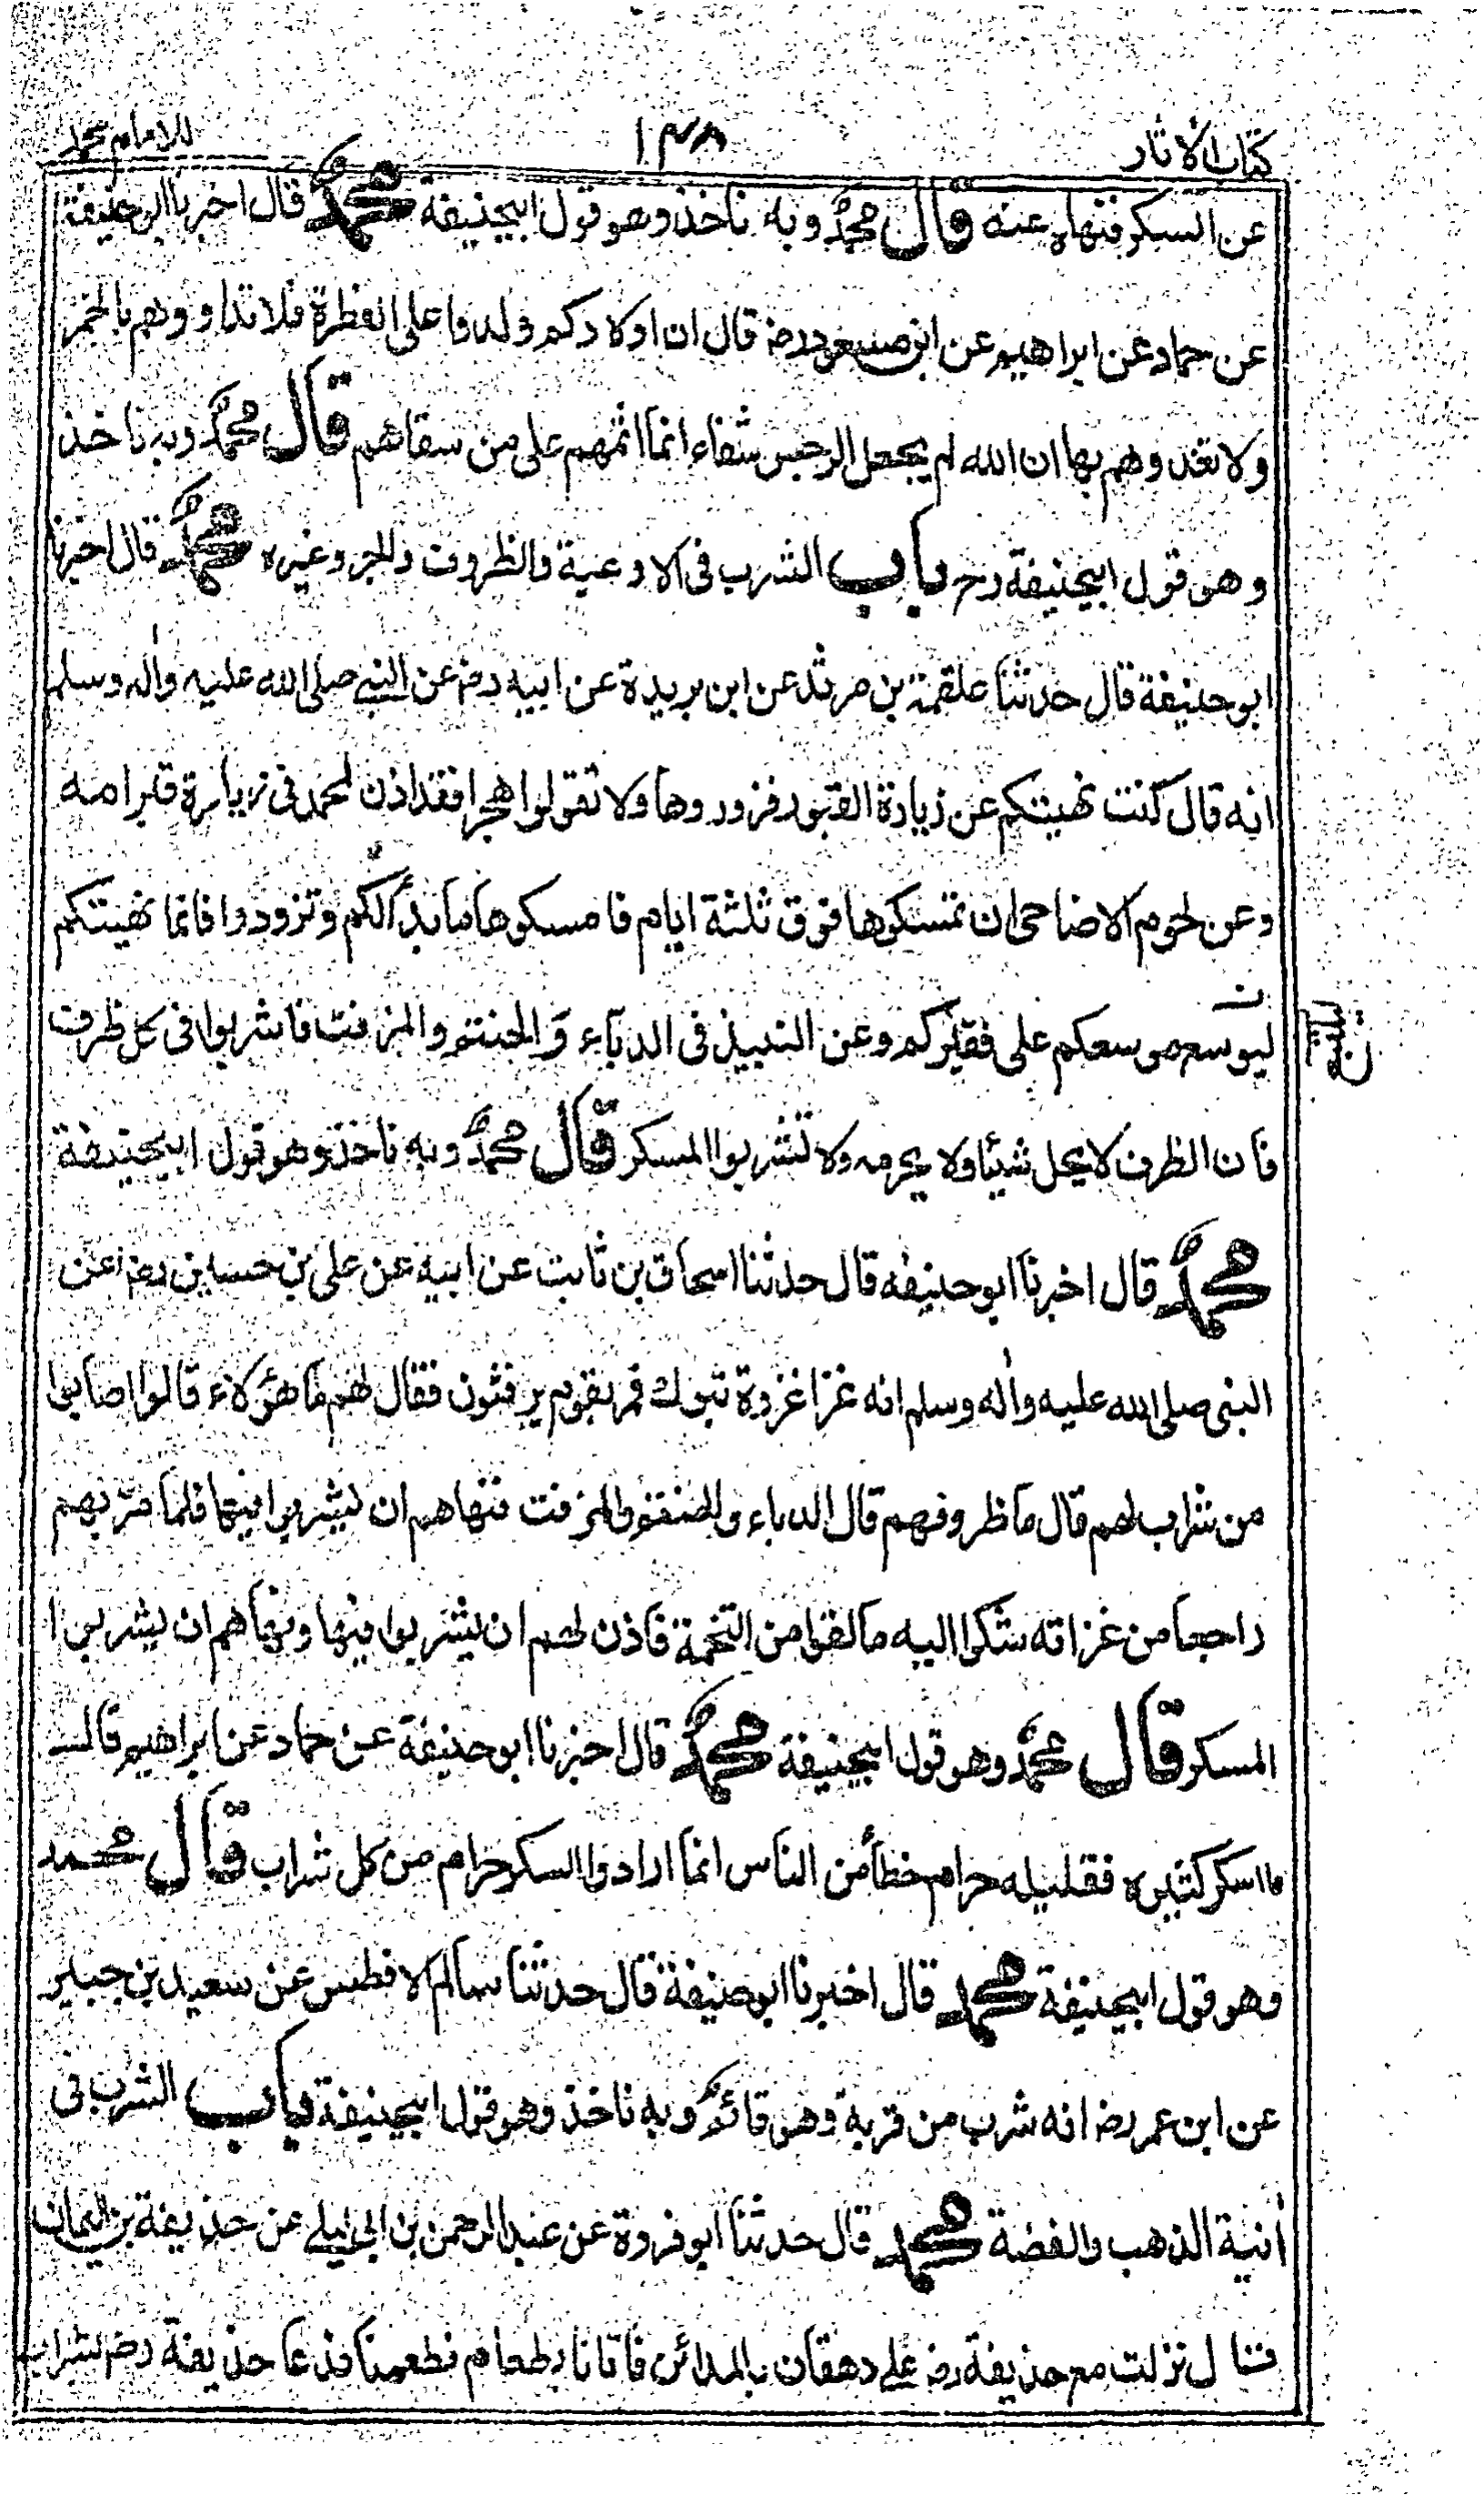 كتاب الأثار ١٣٨ للامام محمد
عن السكر فنهاه عنه قال محمد وبه ناخذ وهو قول ابيحنيفة محمد قال اخبرنا ابو حنيفة
عن حماد عن ابراهيم عن ابن مسعود رضـ قال ان اولادكم ولدوا على الفطرة فلا تداووهم بالخمر
ولا تغذوهم بها ان الله لم يجعل الرجس شفاء انما اثمهم على من سقاهم قال محمد وبه ناخذ
وهو قول ابيحنيفة رح باب الشرب فى الاوعية والظروف والجر وغيره محمد قال اخبرنا
ابو حنيفة قال حدثنا علقمة بن مرثد عن ابن بريدة عن ابيه رضـ عن النبى صلى الله عليه واله وسلم
انه قال كنت نهيتكم عن زيارة القبور فزوروها ولا تقولوا هجرا فقد اذن لمحمد فى زيارة قبر امه
وعن لحوم الاضاحى ان تمسكوها فوق ثلثة ايام فامسكوها ما بدألكم وتزودوا فانما نهيتكم
ليوسع موسعكم على فقيركم وعن النبيذ فى الدباء والحنتم والمزفت فاشربوا فى كل ظرف
فان الظرف لا يحل شيئا ولا يحرمه ولا تشربوا المسكر قال محمد وبه ناخذ وهو قول ابيحنيفة
محمد قال اخبرنا ابو حنيفة قال حدثنا اسحاق بن ثابت عن ابيه عن على بن حسين رضـ عن
النبى صلى الله عليه واله وسلم انه غزا غزوة تبوك فمر بقوم يرفثون فقال لهم ما هؤلاء قالوا اصابوا
من شراب لهم قال ما ظروفهم قال الدباء والحنتم والمزفت فنهاهم ان يشربوا فيها فلما مر بهم
راجعا من غزاته شكوا اليه ما لقوا من التخمة فاذن لهم ان يشربوا فيها ونهاهم ان يشربوا
المسكر قال محمد وهو قول ابيحنيفة محمد قال اخبرنا ابو حنيفة عن حماد عن ابراهيم قال
ما اسكر كثيره فقليله حرام خطأ من الناس انما ارادوا السكر حرام من كل شراب قال محمد
وهو قول ابيحنيفة محمد قال اخبرنا ابو حنيفة قال حدثنا سالم الافطس عن سعيد بن جبير
عن ابن عمر رضـ انه شرب من قربة وهو قائم وبه ناخذ وهو قول ابيحنيفة باب الشرب فى
أنية الذهب والفضة محمد قال حدثنا ابو فروة عن عبد الرحمن بن ابى ليلى عن حذيفة بن اليمان
قال نزلت مع حذيفة رضـ على دهقان بالمدائن فأتانا بطعام فطعمنا فدعا حذيفة رضـ بشراب